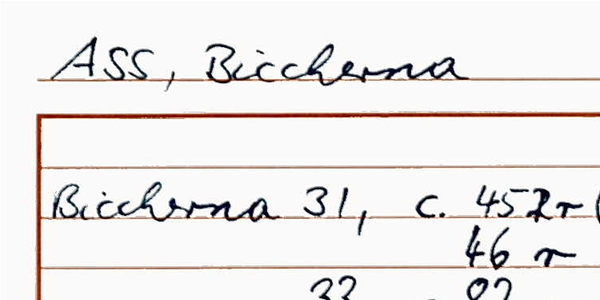 ASS, Biccherna
Biccherna 31, c. 452r
46 r